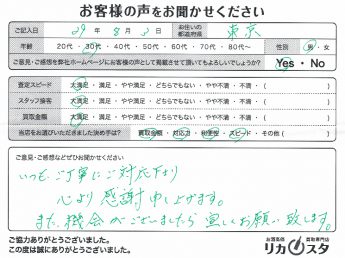 お客様の声をお聞かせください
ご記入日 29年 8月 3日 お住いの都道府県 東京
年齢 20代・30代・40代・50代・60代・70代・80代～ 性別 男・女
ご意見・ご感想を弊社ホームページにお客様の声として掲載させて頂いてもよろしいでしょうか? Yes・No
査定スピード 大満足・満足・やや満足・どちらでもない・やや不満・不満・( )
スタッフ接客 大満足・満足・やや満足・どちらでもない・やや不満・不満・( )
買取金額 大満足・満足・やや満足・どちらでもない・やや不満・不満・( )
当店をお選びいただきました決め手は? 買取金額・対応力・利便性・スピード・その他( )
ご意見・ご感想などぜひお聞かせください
いつもご丁寧にご対応下さり
心より感謝申し上げます。
また機会がございましたら宜しくお願い致します。
ご協力ありがとうございました。
この度は誠にありがとうございました。
お酒名価 買取専門店
リカスタ